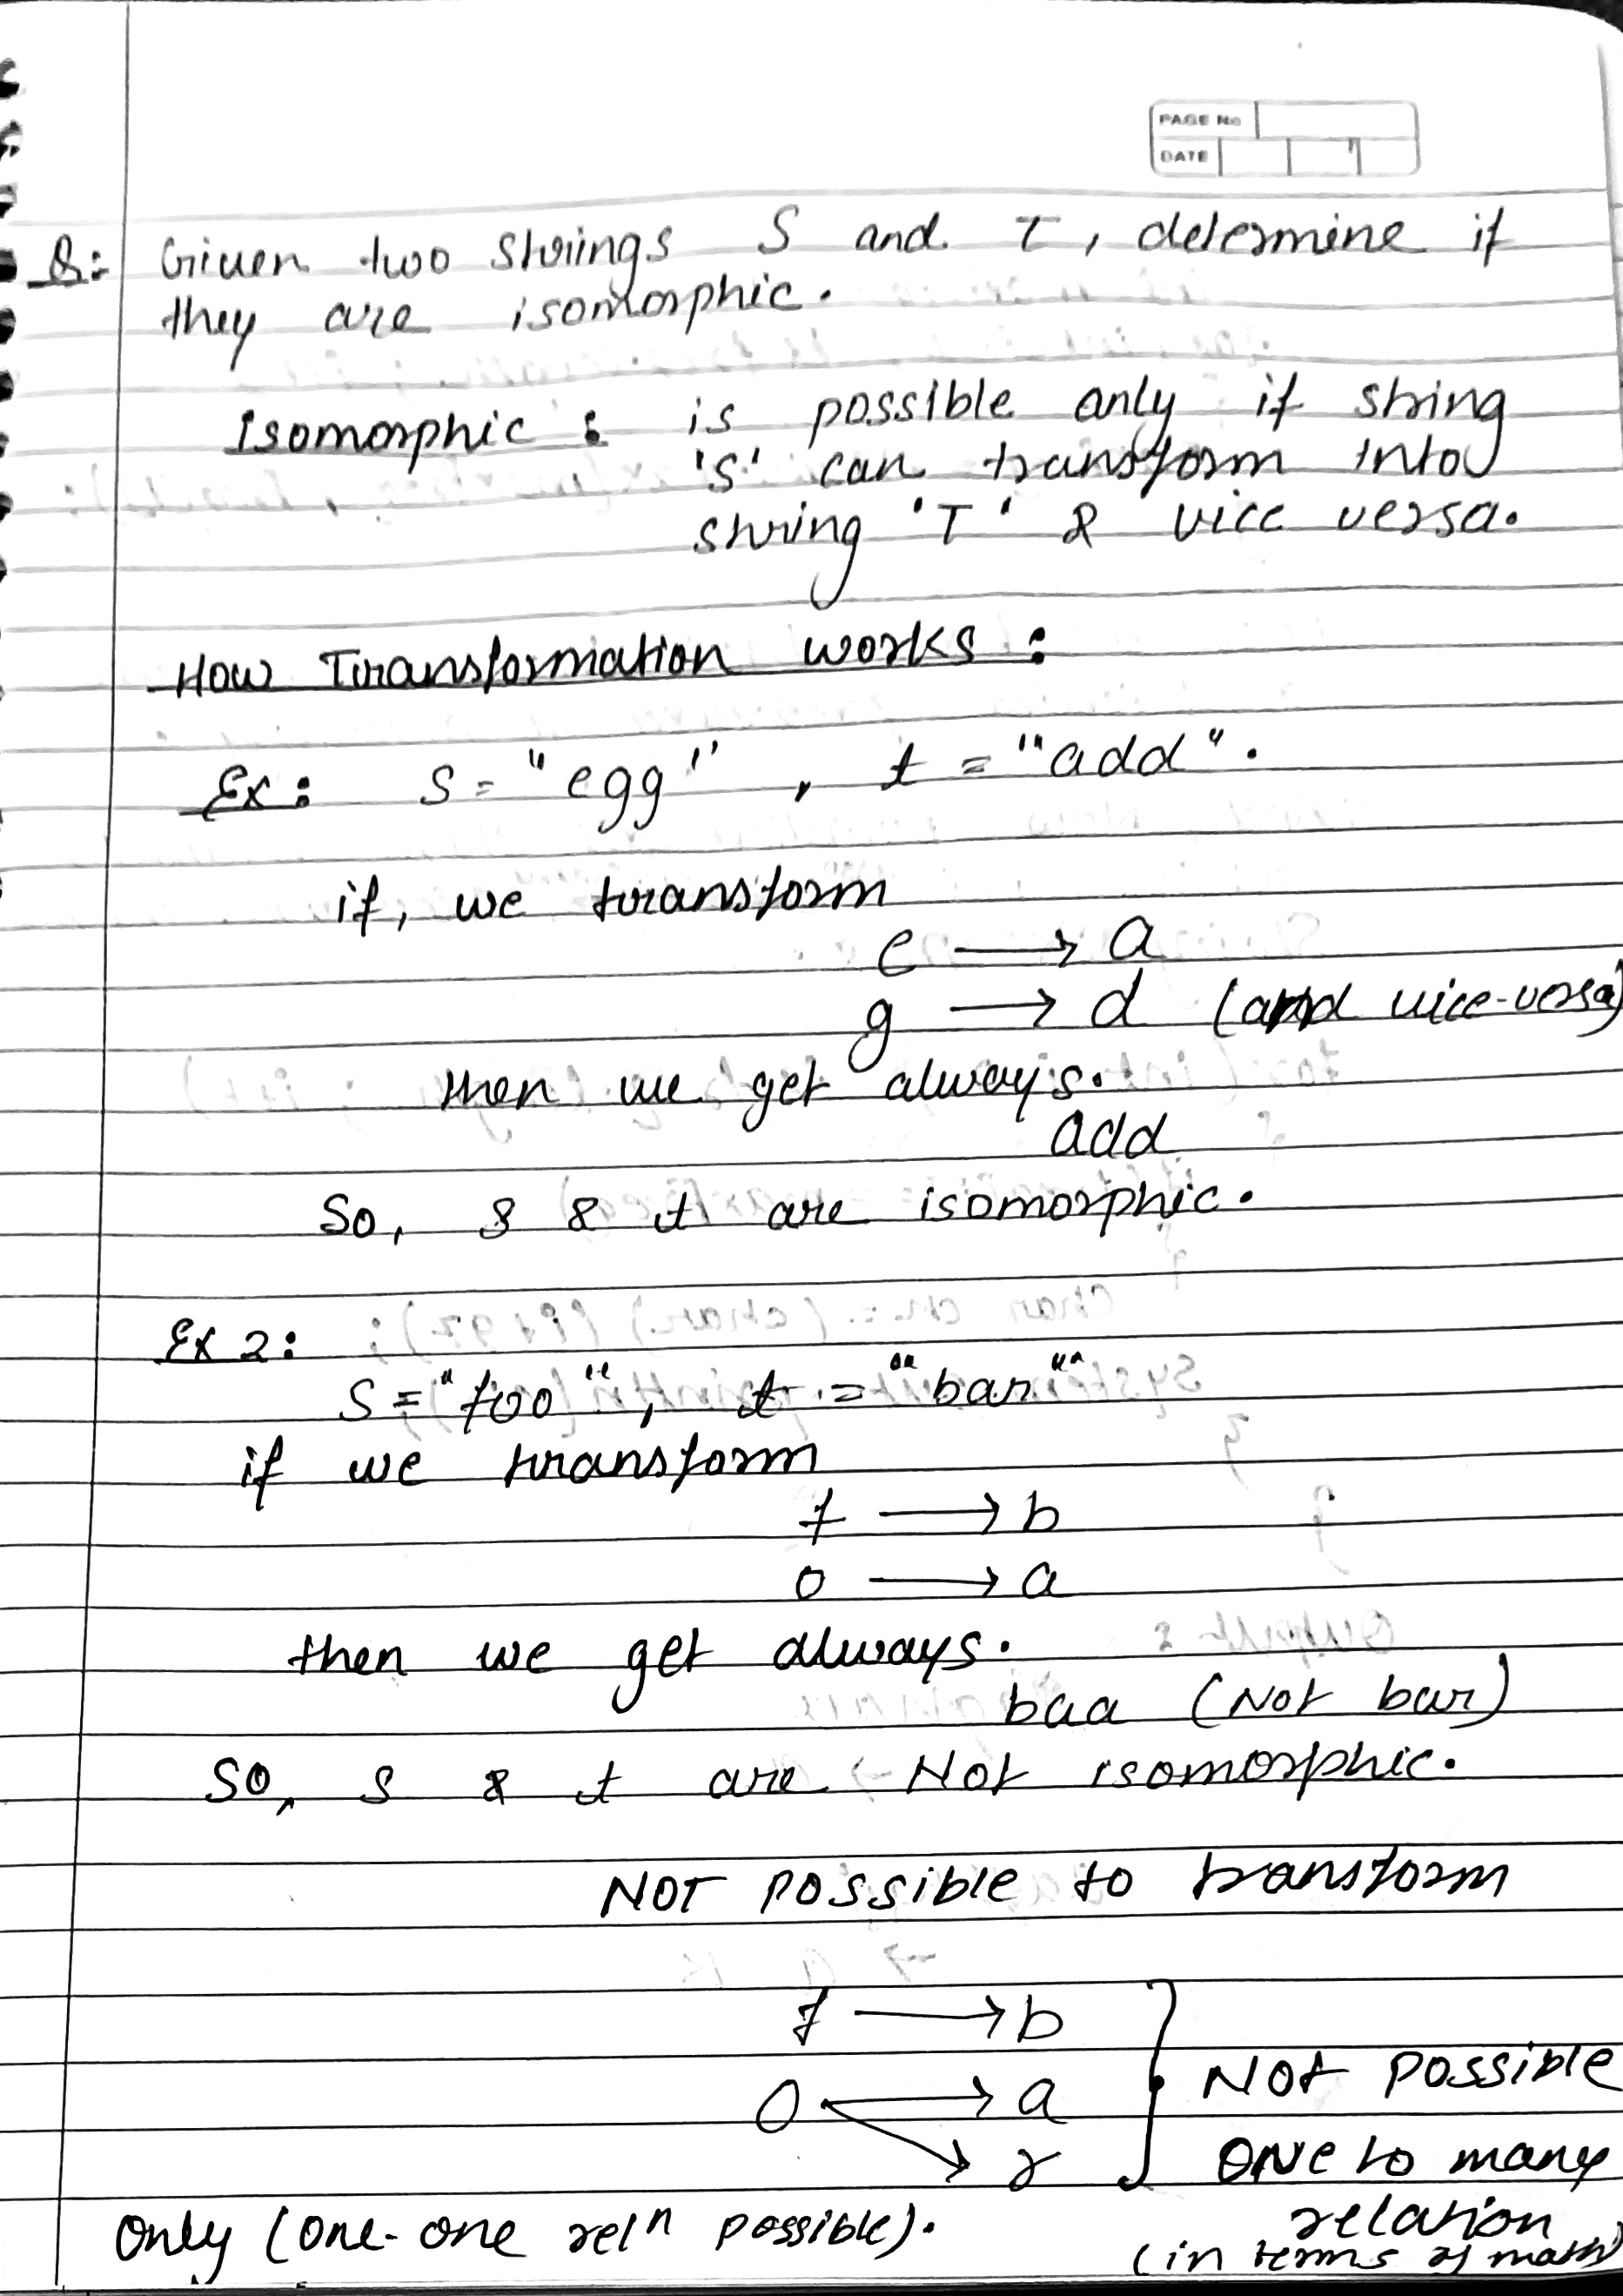 PAGE No
DATE
Q: Given two strings S and T, determine if
they are isomorphic.
Isomorphic : is possible only if string
'S' can transform into
string 'T' & vice versa.
How Transformation works :
Ex: S = "egg", t = "add".
if, we transform
e → a
g → d (and vice-versa)
then we get always.
add
So, s & t are isomorphic.
Ex 2:
S = "foo", t = "bar"
if we transform
f → b
o → a
then we get always.
baa (Not bar)
So, s & t are Not isomorphic.
NOT possible to transform
f → b
o → a Not possible
→ r ONE to many
relation
Only (one-one relⁿ possible).
(in terms of math)